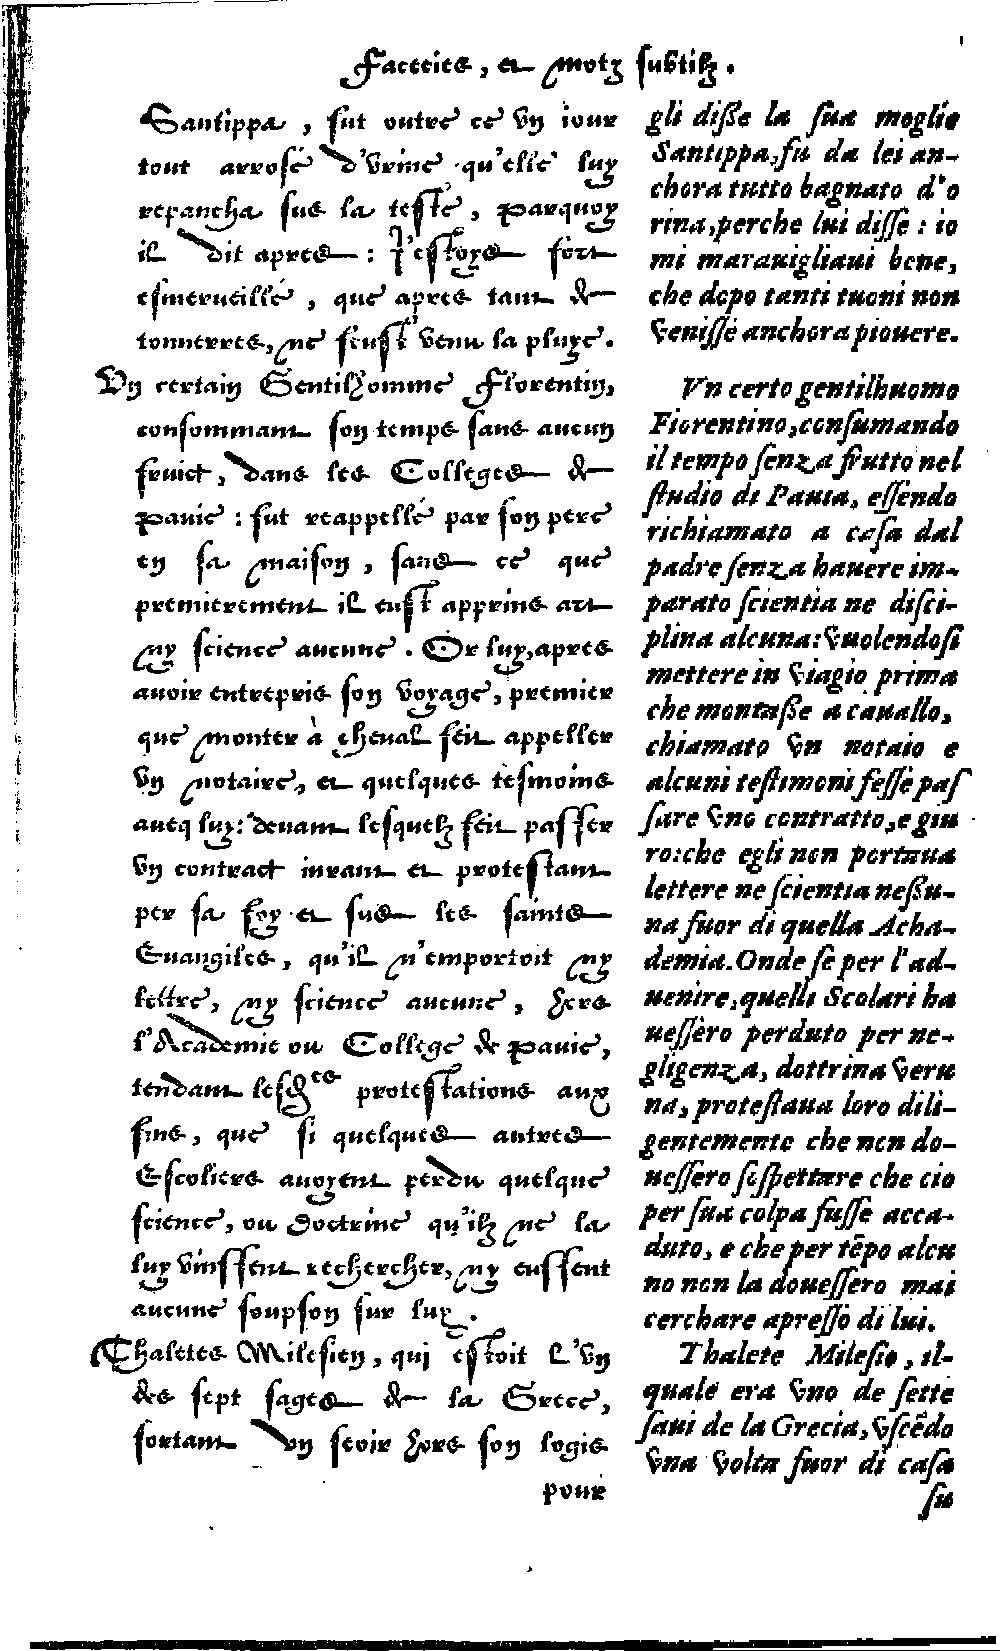 Faceties, et motz subtilz.
Santippa, fut outre ce vn iour
tout arrosé d'vrine qu'elle luy
repancha sus la teste, parquoy
il dit apres: i'estoys fort
esmerueillé, que apres tant de
tonnerres, ne feust venu la pluye.
Vn certain Gentilhomme Florentin,
consommant son temps sans aucun
fruict, dans les Colleges de
Pauie: fut reappellé par son pere
en sa maison, sans ce que
premierement il eust apprins art
ny science aucune. Or luy, apres
auoir entrepris son voyage, premier
que monter à cheual feit appeller
vn notaire, et quelques tesmoins
aueq luy: deuant lesquelz feit passer
vn contract iurant et protestant
per sa foy et sus les saints
Euangiles, qu'il n'emportoit ny
lettre, ny science aucune, hors
l'Academie ou College de Pauie,
tendant lesd.es protestations aux
fins, que si quelques autres
Escoliers auoyent perdu quelque
science, ou doctrine qu'ilz ne la
luy vinssent rechercher, ny eussent
aucune soupson sur luy.
Thaletes Milesien, qui estoit l'vn
des sept sages de la Grece,
sortant vn seoir hors son logis
pour
gli disse la sua moglie
Santippa, fu da lei an-
chora tutto bagnato d'o
rina, perche lui disse: io
mi marauigliaui bene,
che dopo tanti tuoni non
venisse anchora piouere.
Vn certo gentilhuomo
Fiorentino, consumando
il tempo senza frutto nel
studio di Pauia, essendo
richiamato a casa dal
padre senza hauere im-
parato scientia ne disci-
plina alcuna: vuolendosi
mettere in viagio prima
che montasse a cauallo,
chiamato vn notaio e
alcuni testimoni fesse pas
sare vno contratto, e giu
ro: che egli non portaua
lettere ne scientia nessu-
na fuor di quella Acha-
demia. Onde se per l'ad-
uenire, quelli Scolari ha
uessero perduto per ne-
gligenza, dottrina veru
na, protestaua loro dili-
gentemente che non do-
uessero sospettare che cio
per sua colpa fusse acca-
duto, e che per tẽpo alcu
no non la douessero mai
cerchare apresso di lui.
Thalete Milesio, il-
quale era vno de sette
saui de la Grecia, vscẽdo
vna volta fuor di casa
su